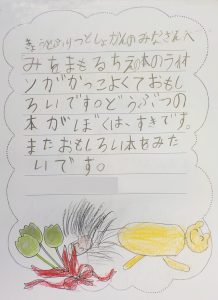 きょうとふりつとしょかんのみなさんへ
みをまもるちえの本のライオ
ンがかっこよくておもし
ろいです。どうぶつの
本がぼくは、すきです。
またおもしろい本をみた
いです。